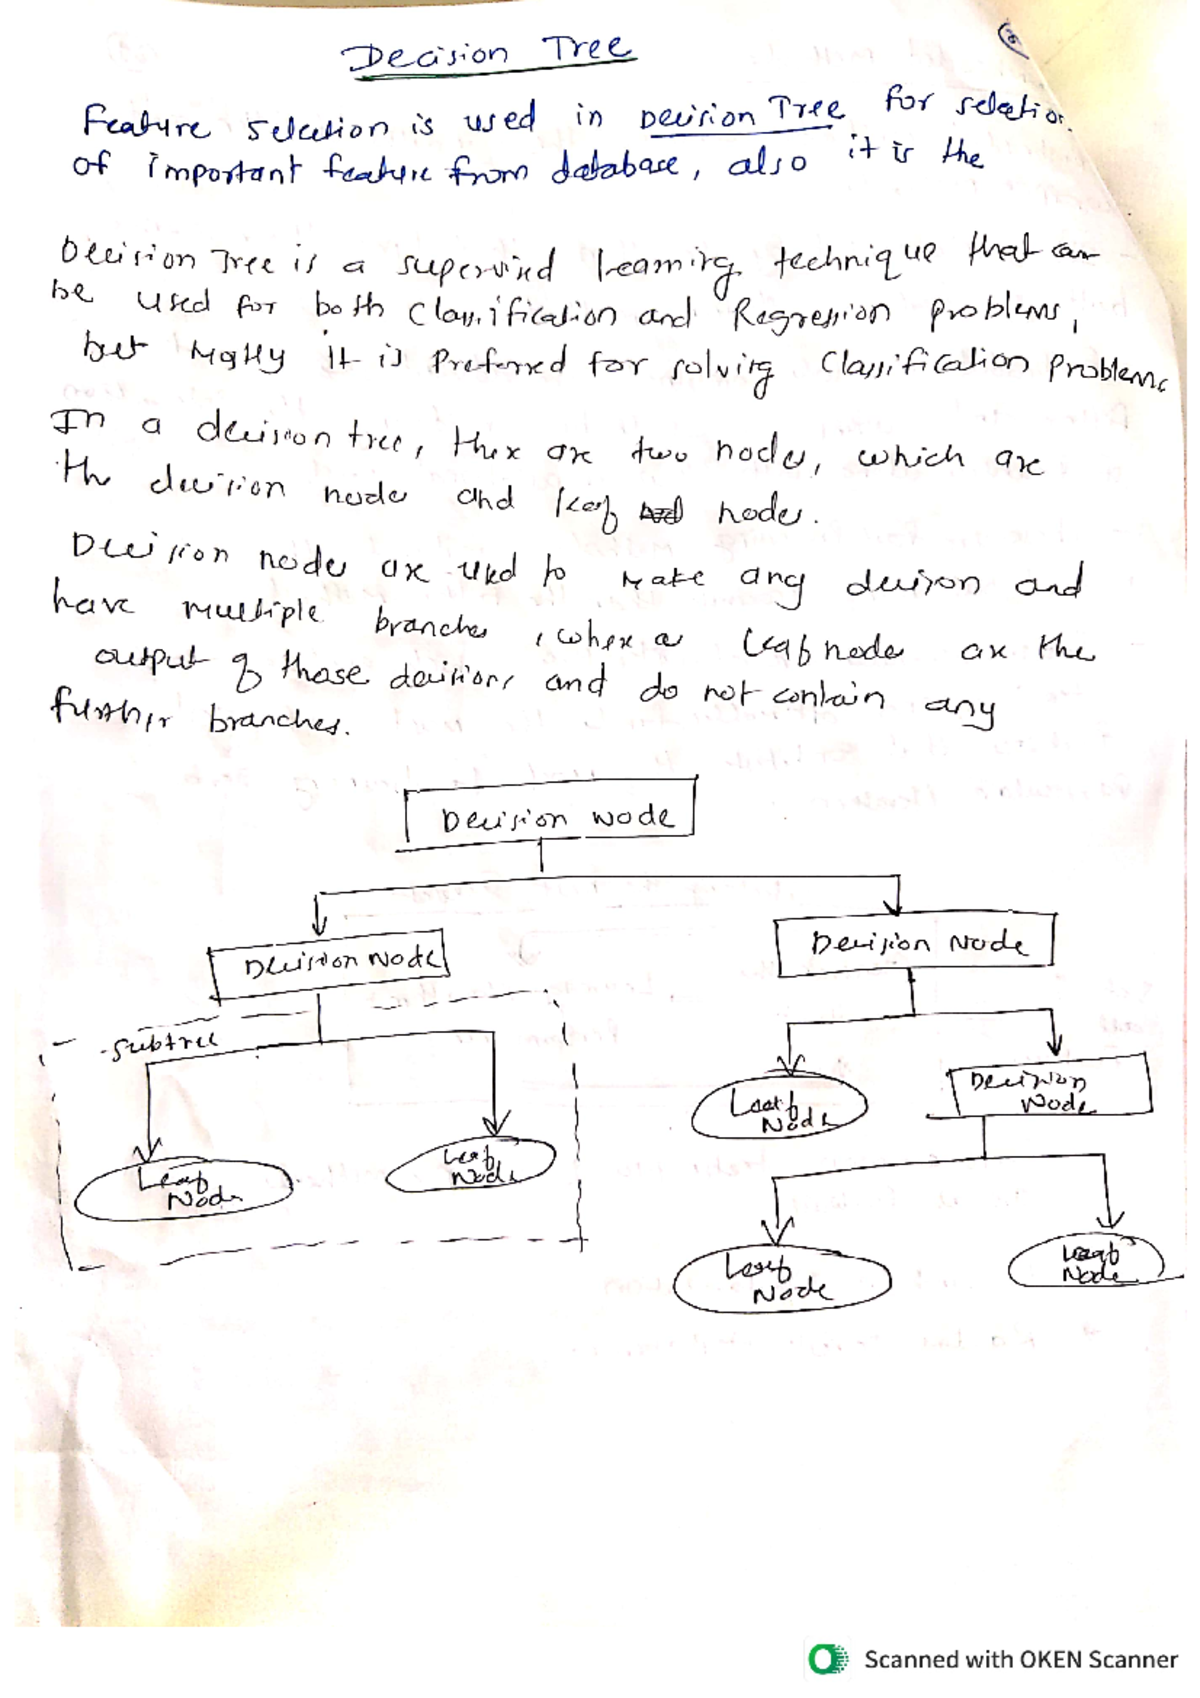 Decision Tree
Feature Selection is used in Decision Tree for selection
of important feature from database, also it is the
Decision Tree is a supervised learning technique that can
be used for both Classification and Regression Problems,
but Mostly it is Preferred for solving Classification Problems
In a decision tree, there are two nodes, which are
the decision node and leaf node.
Decision nodes are used to Make any decision and
have multiple branches, whereas leaf node are the
output of those decisions and do not contain any
further branches.
Decision Node
Decision Node
Decision Node
Subtree
Leaf Node
Decision Node
Leaf Node
Leaf Node
Leaf Node
Leaf Node
Scanned with OKEN Scanner